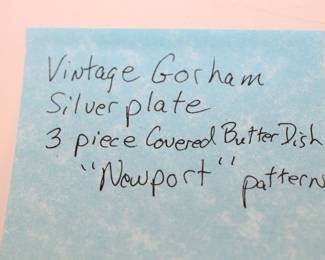 Vintage Gorham
Silverplate
3 piece Covered Butter Dish
"Newport" pattern